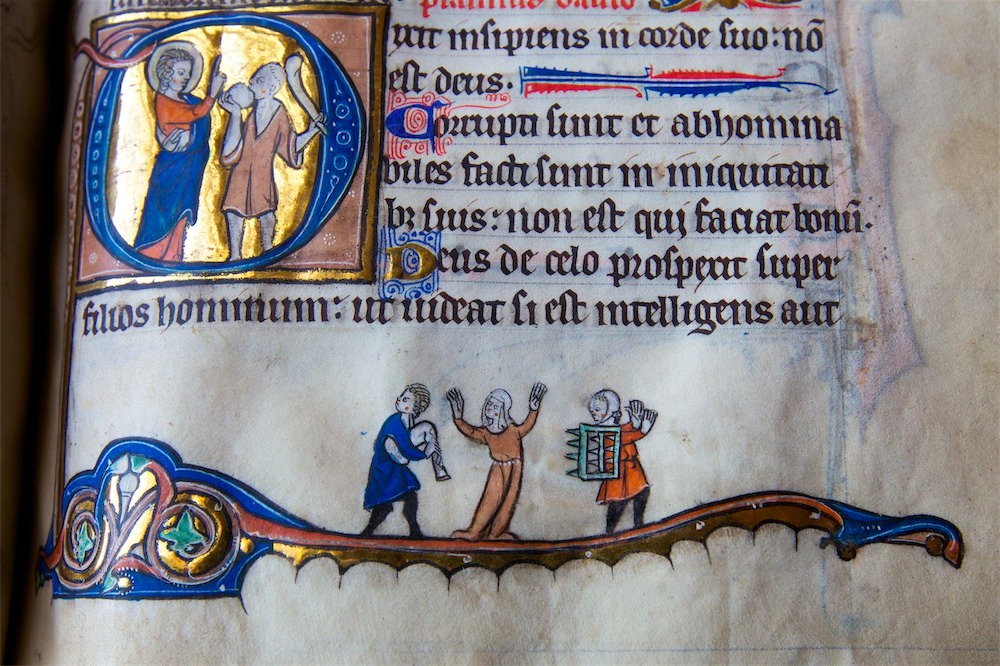 Dixit insipiens in corde suo: nō
est deus.
Corrupti sunt et abhomina
biles facti sunt in iniquitati
bꝫ suis: non est qui faciat bonū.
Deus de celo prospexit super
filios hominum: ut uideat si est intelligens aut